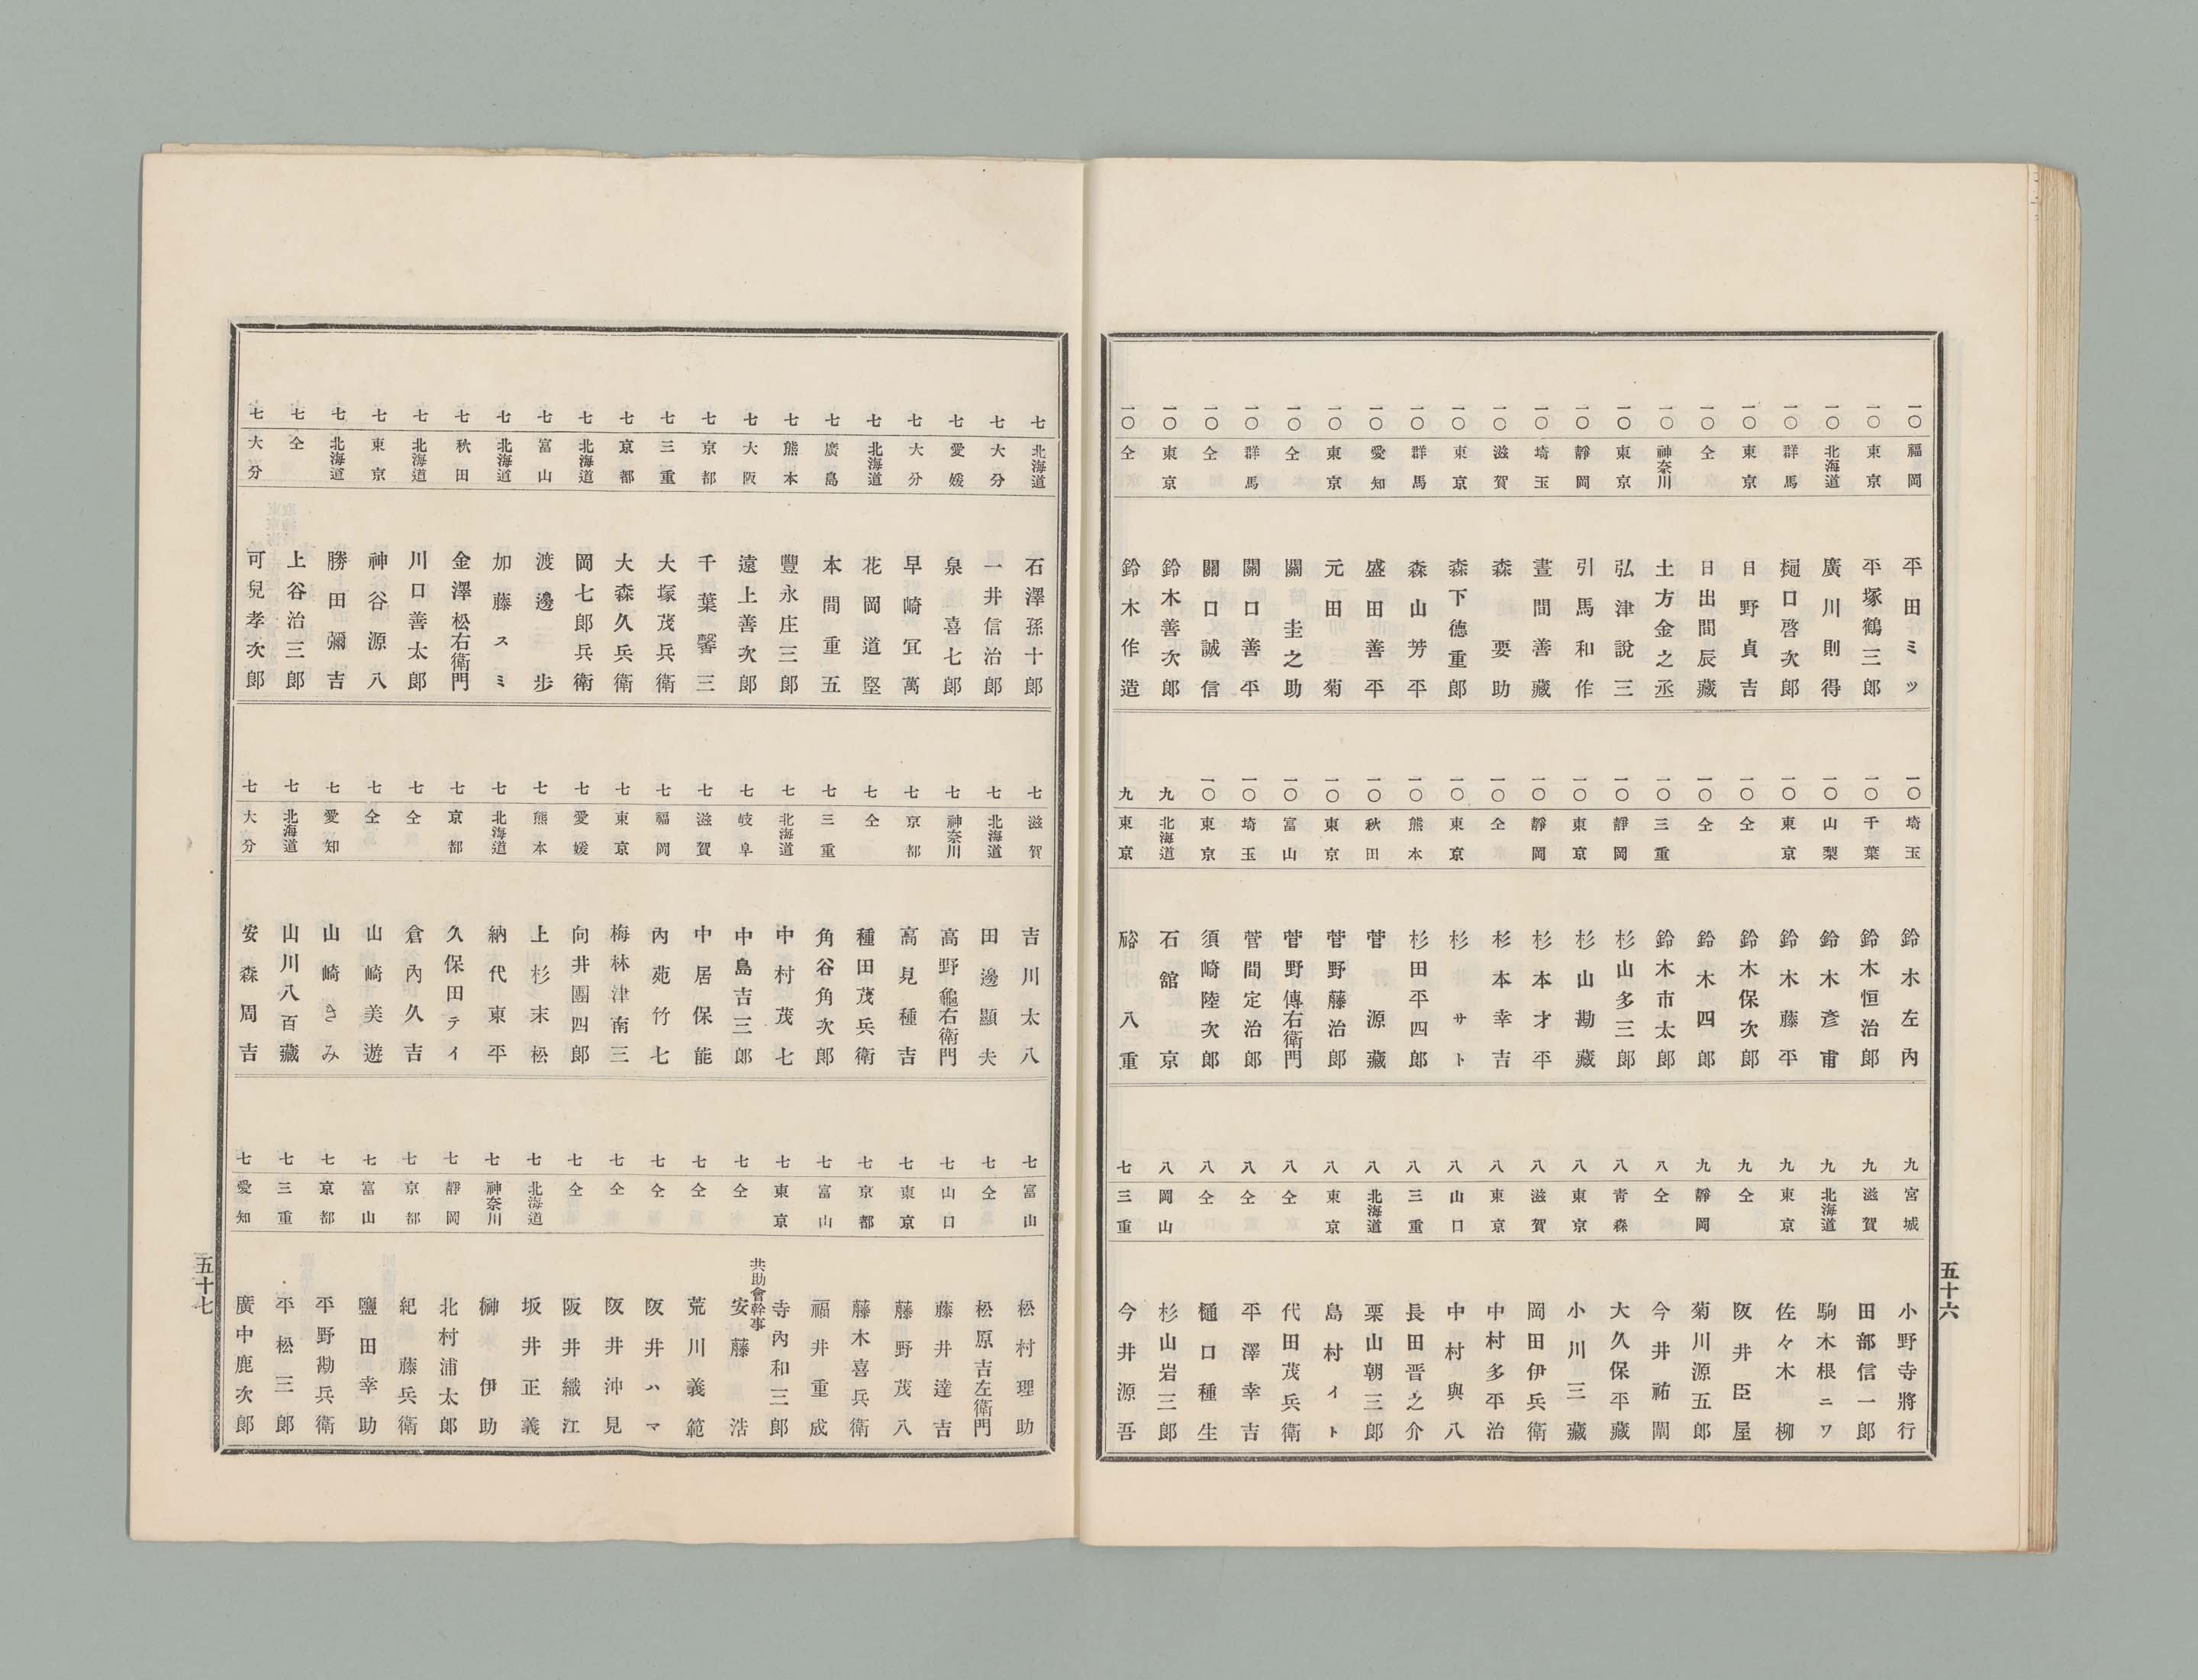 一〇 福岡 平田ミツ
一〇 東京 平塚鶴三郎
一〇 北海道 廣川則得
一〇 群馬 樋口啓次郎
一〇 東京 日野貞吉
一〇 仝 日出間辰藏
一〇 神奈川 土方金之丞
一〇 東京 弘津說三
一〇 靜岡 引馬和作
一〇 埼玉 晝間善藏
一〇 滋賀 森要助
一〇 東京 森下德重郎
一〇 群馬 森山芳平
一〇 愛知 盛田善平
一〇 東京 元田菊
一〇 仝 關圭之助
一〇 群馬 關口善平
一〇 仝 關口誠信
一〇 東京 鈴木善次郎
一〇 仝 鈴木作造
一〇 埼玉 鈴木左內
一〇 千葉 鈴木恒治郎
一〇 山梨 鈴木彥甫
一〇 東京 鈴木藤平
一〇 仝 鈴木保次郎
一〇 仝 鈴木四郎
一〇 三重 鈴木市太郎
一〇 靜岡 杉山多三郎
一〇 東京 杉山勘藏
一〇 靜岡 杉本才平
一〇 仝 杉本幸吉
一〇 東京 杉サト
一〇 熊本 杉田平四郎
一〇 秋田 菅源藏
一〇 東京 菅野藤治郎
一〇 富山 菅野傳右衛門
一〇 埼玉 菅間定治郎
一〇 東京 須崎陸次郎
九 北海道 石舘京
九 東京 硲八重
九 宮城 小野寺將行
九 滋賀 田部信一郎
九 北海道 駒木根ニワ
九 東京 佐々木柳
九 仝 阪井臣屋
九 靜岡 菊川源五郎
八 仝 今井祐
八 青森 大久保平藏
八 東京 小川三藏
八 滋賀 岡田伊兵衛
八 東京 中村多平治
八 山口 中村與八
八 三重 長田晋之介
八 北海道 栗山朝三郎
八 東京 島村イト
八 仝 代田茂兵衛
八 仝 平澤幸吉
八 仝 樋口種生
八 岡山 杉山岩三郎
七 三重 今井源吾
五十六
七 北海道 石澤孫十郎
七 大分 一井信治郎
七 愛媛 泉喜七郎
七 大分 早崎冝萬
七 北海道 花岡道堅
七 廣島 本間重五
七 熊本 豐永庄三郎
七 大阪 遠上善次郎
七 京都 千葉馨三
七 三重 大塚茂兵衛
七 京都 大森久兵衛
七 北海道 岡七郎兵衛
七 富山 渡邊步
七 北海道 加藤スミ
七 秋田 金澤松右衛門
七 北海道 川口善太郎
七 東京 神谷源八
七 北海道 勝田彌吉
七 仝 上谷治三郎
七 大分 可兒孝次郎
七 滋賀 吉川太八
七 北海道 田邊顯夫
七 神奈川 高野龜右衛門
七 京都 高見種吉
七 仝 種田茂兵衛
七 三重 角谷角次郎
七 北海道 中村茂七
七 岐阜 中島吉三郎
七 滋賀 中居保能
七 福岡 內苑竹七
七 東京 梅林津南三
七 愛媛 向井團四郎
七 熊本 上杉末松
七 北海道 納代東平
七 京都 久保田テイ
七 仝 倉內久吉
七 仝 山崎美遊
七 愛知 山崎きみ
七 北海道 山川八百藏
七 大分 安森周吉
七 富山 松村理助
七 仝 松原吉左衛門
七 山口 藤井達吉
七 東京 藤野茂八
七 京都 藤木喜兵衛
七 富山 福井重成
七 東京 寺內和三郎
七 仝 共助會幹事 安藤浩
七 仝 荒川義範
七 仝 阪井ハマ
七 仝 阪井沖見
七 仝 阪井織江
七 北海道 坂井正義
七 神奈川 榊伊助
七 靜岡 北村浦太郎
七 京都 紀藤兵衛
七 富山 鹽田幸助
七 京都 平野勘兵衛
七 三重 平松三郎
七 愛知 廣中鹿次郎
五十七